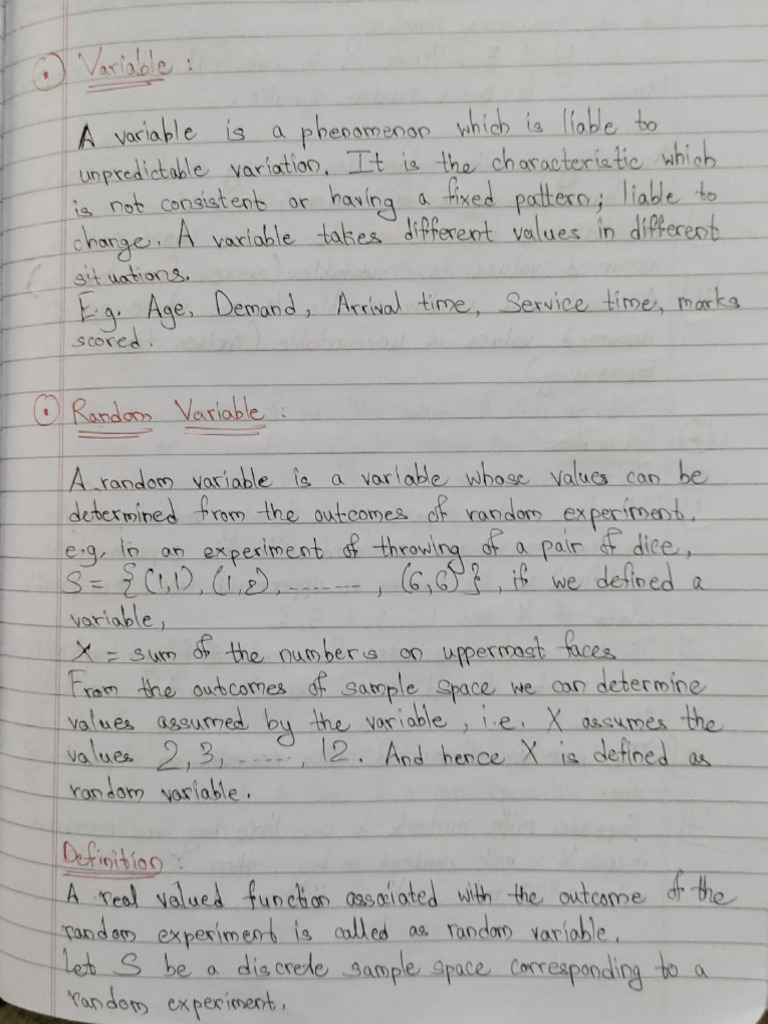 Variable :
A variable is a phenomenon which is liable to
unpredictable variation. It is the characteristic which
is not consistent or having a fixed pattern; liable to
change. A variable takes different values in different
situations.
E.g. Age, Demand, Arrival time, Service time, marks
scored.
Random Variable :
A random variable is a variable whose values can be
determined from the outcomes of random experiment.
e.g. in an experiment of throwing of a pair of dice,
S = {(1,1), (1,2), ......., (6,6)}, if we defined a
variable,
X = sum of the numbers on uppermost faces
From the outcomes of sample space we can determine
values assumed by the variable, i.e. X assumes the
values 2, 3, ......, 12. And hence X is defined as
random variable.
Definition :
A real valued function associated with the outcome of the
random experiment is called as random variable.
Let S be a discrete sample space corresponding to a
random experiment.